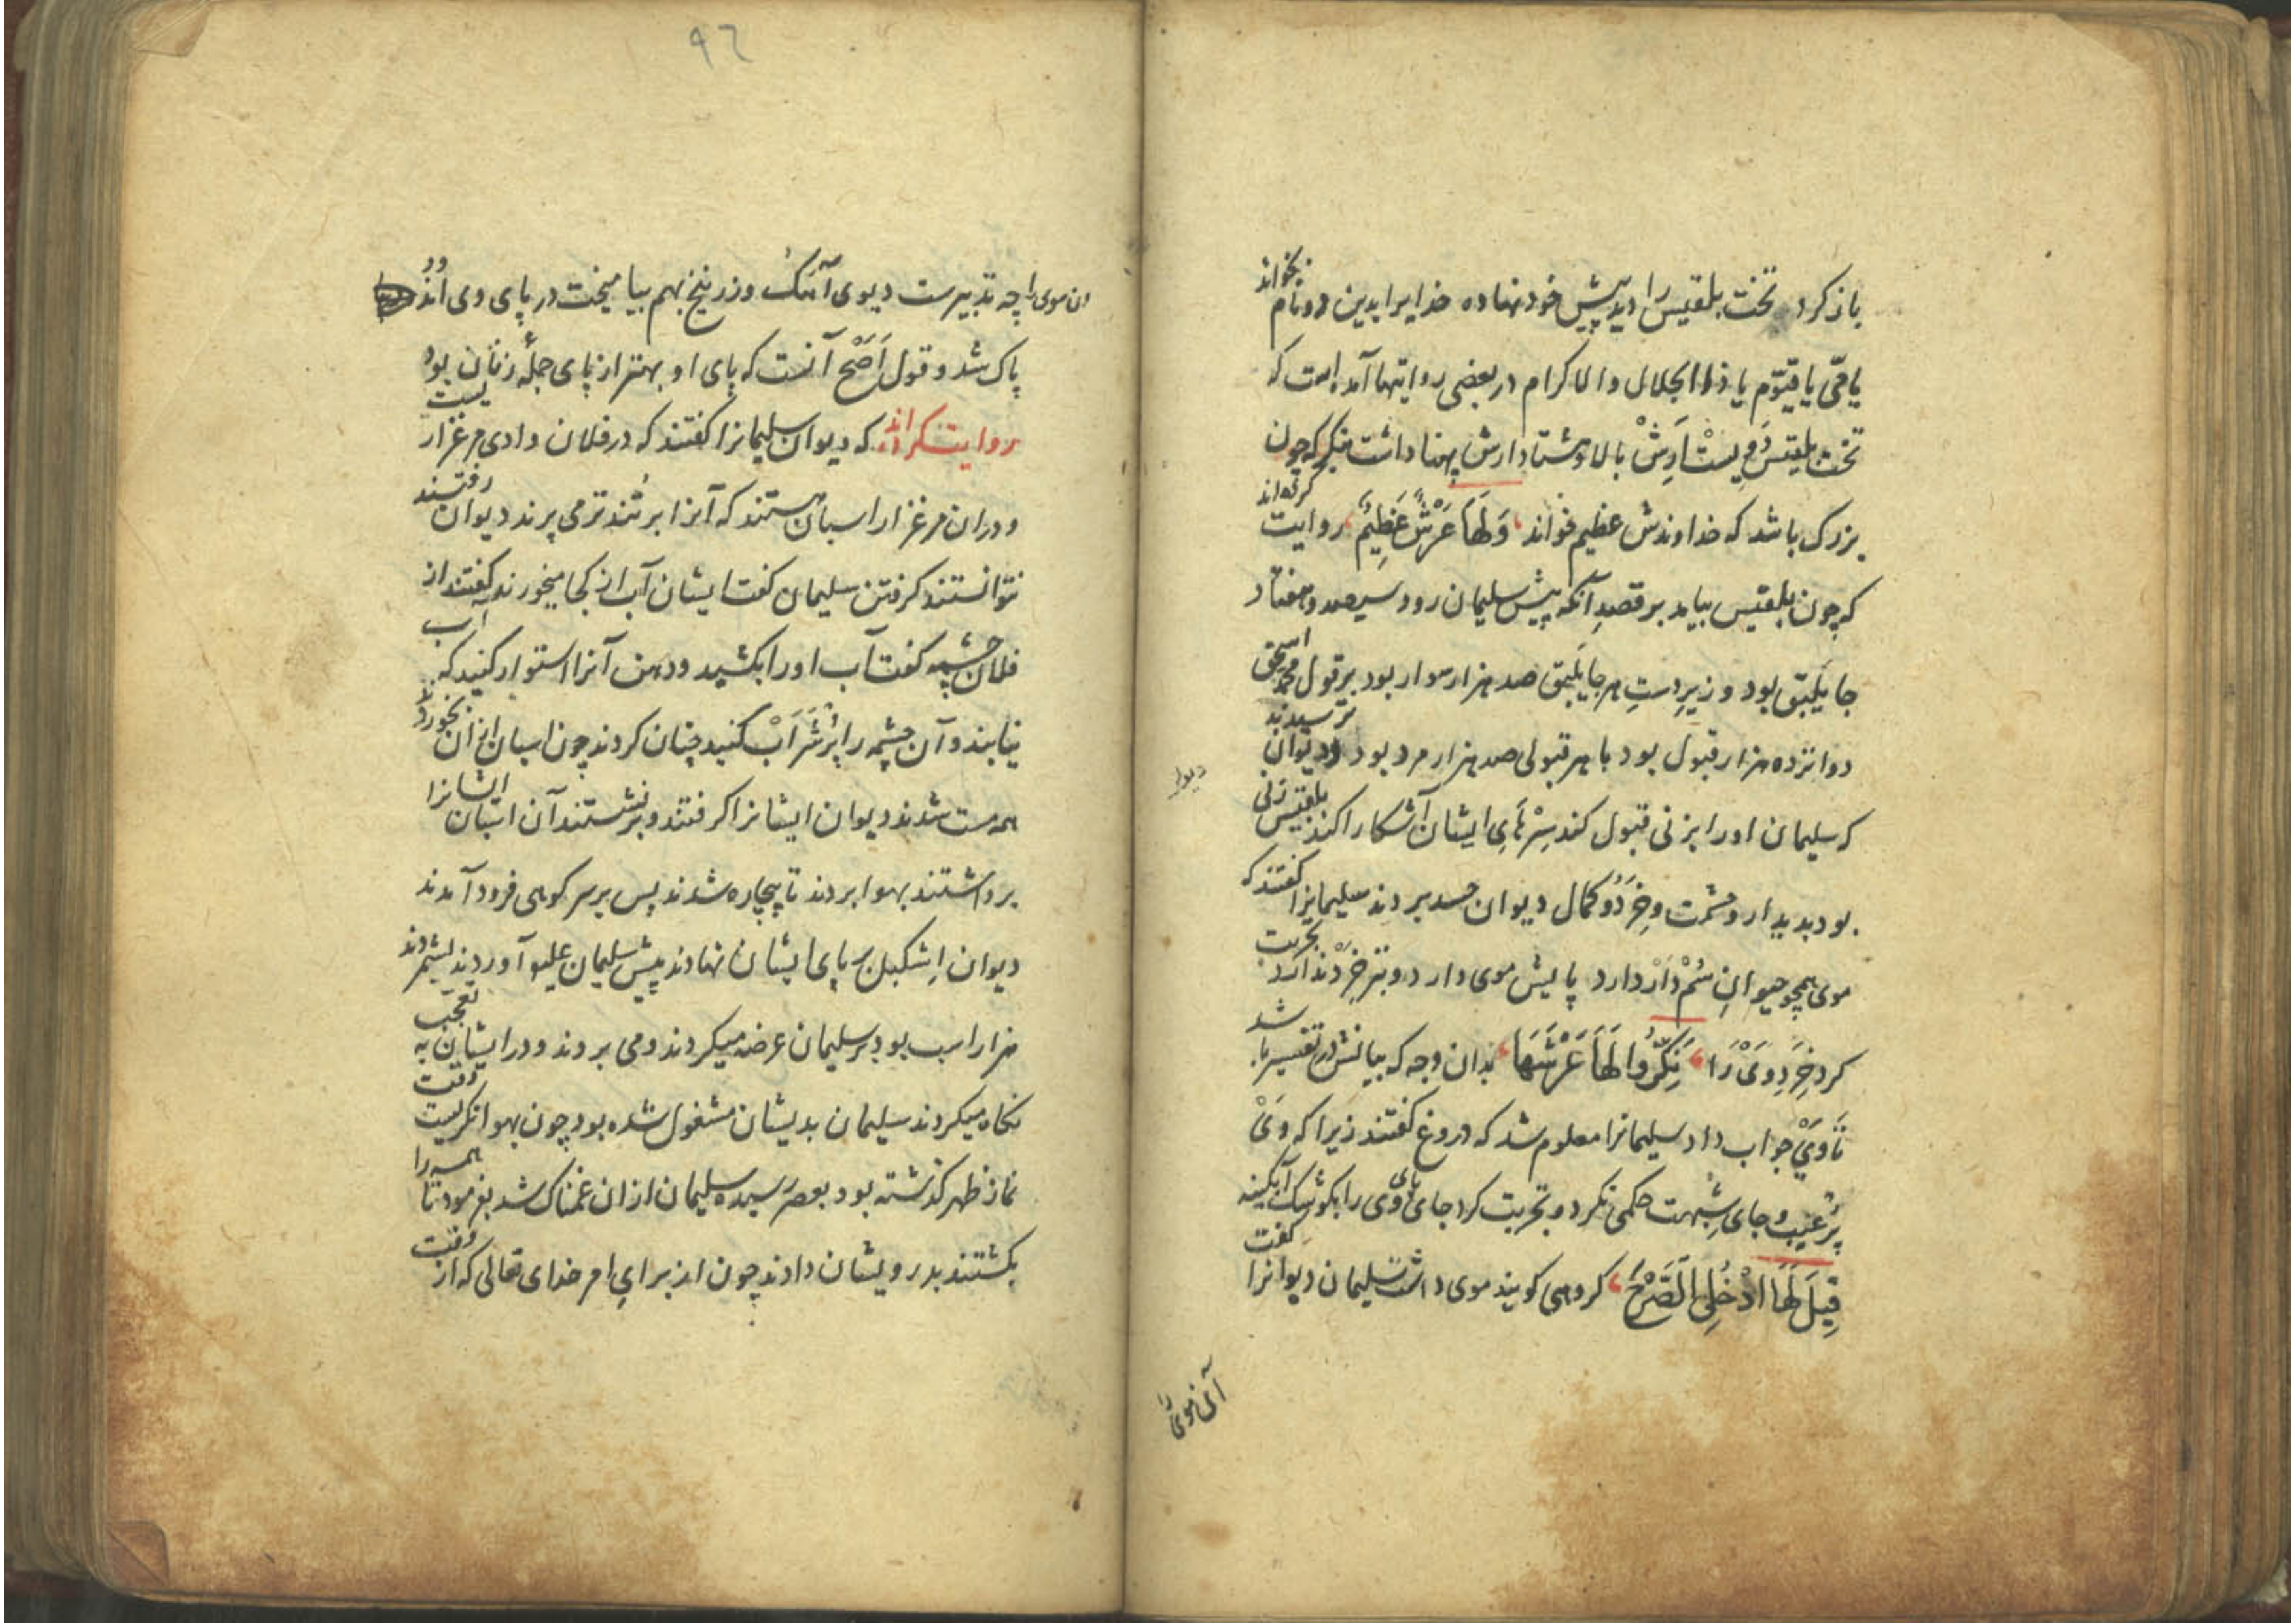 باز کرد تخت بلقیس را دید پیش خود نهاده خدایرا بدین دو نام بخواند
یا حیّ یا قیّوم یا ذا الجلال والاکرام در بعضی روایتها آمده است که
تخت بلقیس دویست اَرِش بالا و هشتاد ارش پهنا داشت بنگر که چون
بزرک باشد که خداوندش عظیم خواند وَلَهَا عَرْشٌ عَظِیْمٌ روایت کرده‌اند
که چون بلقیس بیامد بر قصدِ آنکه پیش سلیمان رود سیصد و هفتاد
جایَلیَق بود و زیرِ دستِ هر جایَلیَق صد هزار سوار بود بر قول محمد اسحق
دوانزده هزار قبول بود با هر قبولی صد هزار مرد بود دیوان ترسیدند
که سلیمان او را بزنی قبول کند سِرْهَایِ ایشان آشکارا کند بلقیس زنی
بود بدیدار و حشمت و خِرَدُ و کمال دیوان حسد بردند سلیمانرا کفتند که
موی همچو حیوانِ سُمْ دَارْ دارد پایش موی دارد و نیز خِرَدْ ندارد تجربت
کرد خِرَدِ وَیْ رَا نَکِّرُوا لَهَا عَرْشَهَا بدان وجه که بیانش در تفسیر باشد
تا وَیْ جواب داد سلیمانرا معلوم شد که دروغ کفتند زیرا که وَیْ
پُر عَیْب و جایِ شُبهت حکمی نکرد و تجربت کرد جای پای وی را بکوشک آبکینه
قِیلَ لَهَا ادْخُلِی الصَّرْحَ کروهی کویند موی داشت سلیمان دیوانرا کفت
آن موی را
دیوان
٩٦
ان موی را چه تدبیرست دیوی آهَکْ و زرنیخ بهم بیامیخت در پای وی اندود
پاک شد و قول اَصَحْ آنست که پای او بهتر از پای جملهٔ زنان بود
روایت کرده‌اند که دیوان سلیمانرا کفتند که در فلان وادی مرغزاریست
و در ان مرغزار اسبان هستند که آنرا پرنُد تر می پرند دیوان رفتند
نتوانستند کرفتن سلیمان کفت ایشان آب از کجا میخورند کفتند از
فلان چشمه کفت آب او را بکشید و دهن آنرا استوار کنید که آب
نیابند و آن چشمه را پُرْ شَرَابْ کنید چنان کردند چون اسبان ازان بخوردند
همه مست شدند دیوان ایشانرا کرفتند و بر نشستند آن اسبان ایشانرا
برداشتند بهوا بردند تا بیچاره شدند پس بر سر کوهی فرود آمدند
دیوان اِشکیل بر پای ایشان نهادند پیش سلیمان علیه آوردند بشمردند
هزار اسب بود بر سلیمان عرضه میکردند و می بردند و در ایشان به تعجّب
نکاه میکردند سلیمان بدیشان مشغول شده بود چون بهوا نکریست وقت
نماز ظهر کذشته بود بعصر رسیده سلیمان ازان غمناک شد بفرمود تا همه را
بکشتند بدرویشان دادند چون از برایِ امر خدای تعالی که از وقت